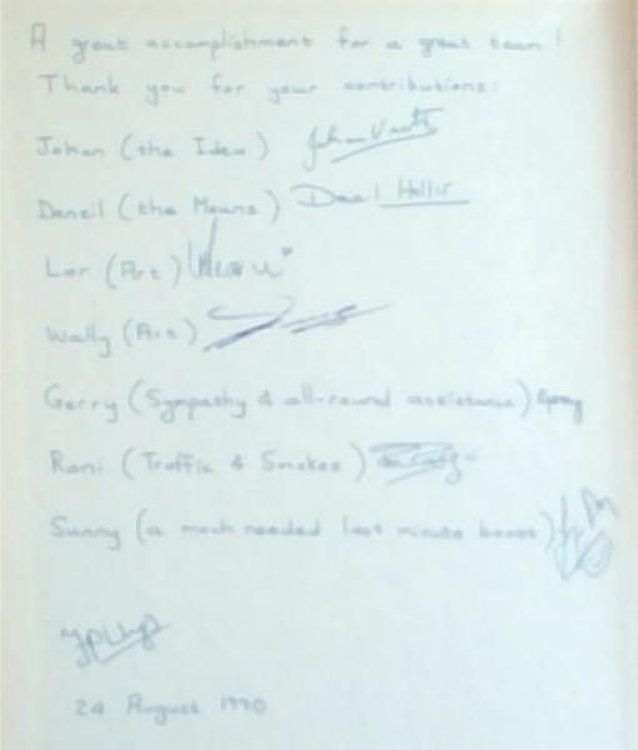 A great accomplishment for a great team!
Thank you for your contributions:
Johan (the Idea)
Denzil (the Means) Hollis
Lor (Art)
Wally (Art)
Gerry (Sympathy & all-round assistance) Gerry
Rani (Traffic & Smokes)
Sunny (a much needed last minute boost)
24 August 1990